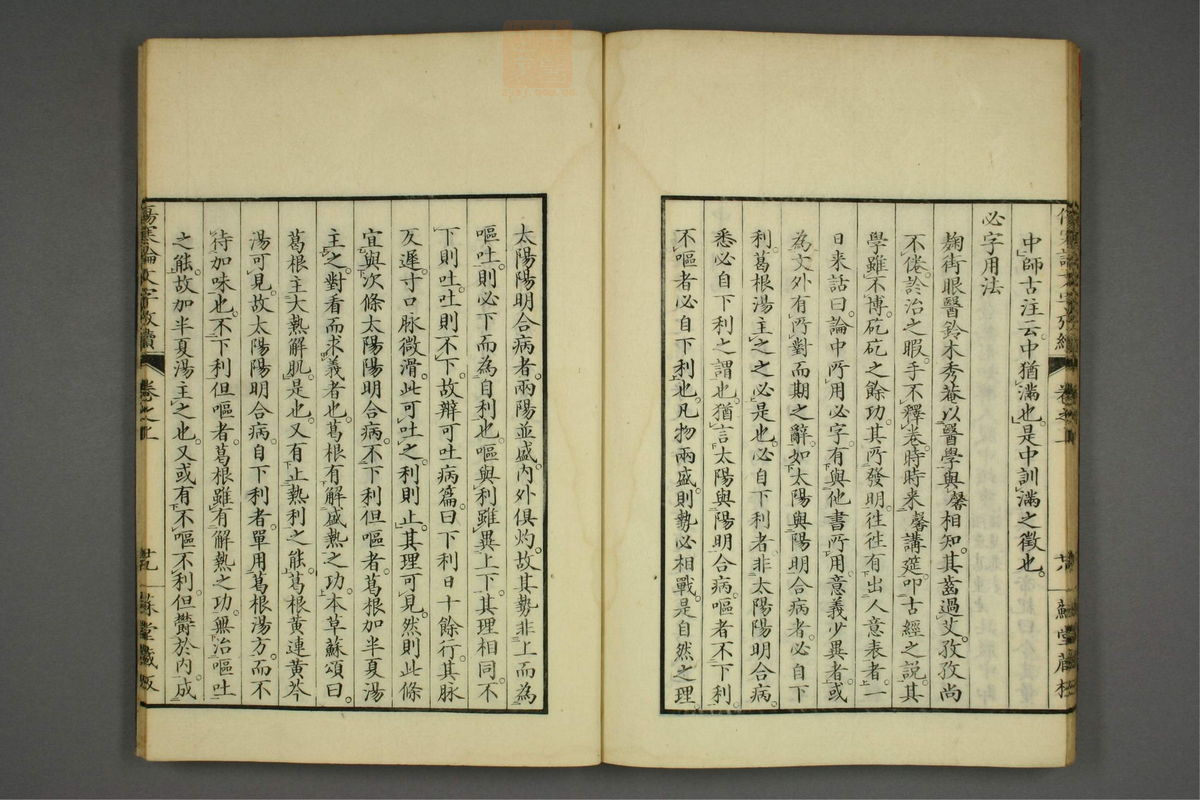 中師古注云。中猶滿也。是中訓滿之徵也。
必字用法
麹街眼醫鈴木秀菴以醫學與馨相知。其齒過艾。孜孜尚
不倦。於治之暇。手不釋卷。時時來馨講筵。叩古經之說。其
學雖不博。矻矻之餘功。其所發明。往往有出人意表者。一
日來詰曰。論中所用必字。有與他書所用意義少異者。或
為文外有所對而期之辭。如太陽與陽明合病者。必自下
利。葛根湯主之之必。是也。必自下利者。非太陽陽明合病。
悉必自下利之謂也。猶言太陽與陽明合病。嘔者不下利。
不嘔者必自下利也。凡物兩盛。則勢必相戰。是自然之理。
傷寒論文字攷續
卷之上
蘇堂藏板
太陽陽明合病者。兩陽並盛。內外俱灼。故其勢非上而為
嘔吐。則必下而為自利也。嘔與利雖異上下。其理相同。不
下則吐。吐則不下。故辯可吐病篇曰。下利日十餘行。其脉
反遲。寸口脉微滑。此可吐之。利則止。其理可見。然則此條
宜與次條太陽陽明合病。不下利但嘔者。葛根加半夏湯
主之。對看而求義者也。葛根有解盛熱之功。本草蘇頌曰。
葛根主大熱解肌。是也。又有止熱利之能。葛根黃連黃芩
湯可見。故太陽陽明合病。自下利者。單用葛根湯方。而不
待加味也。不下利但嘔者。葛根雖有解熱之功。無治嘔吐
之能。故加半夏湯主之也。又或有不嘔不利。但鬱於內。成
傷寒論文字攷續
卷之上
廿九
蘇堂藏板